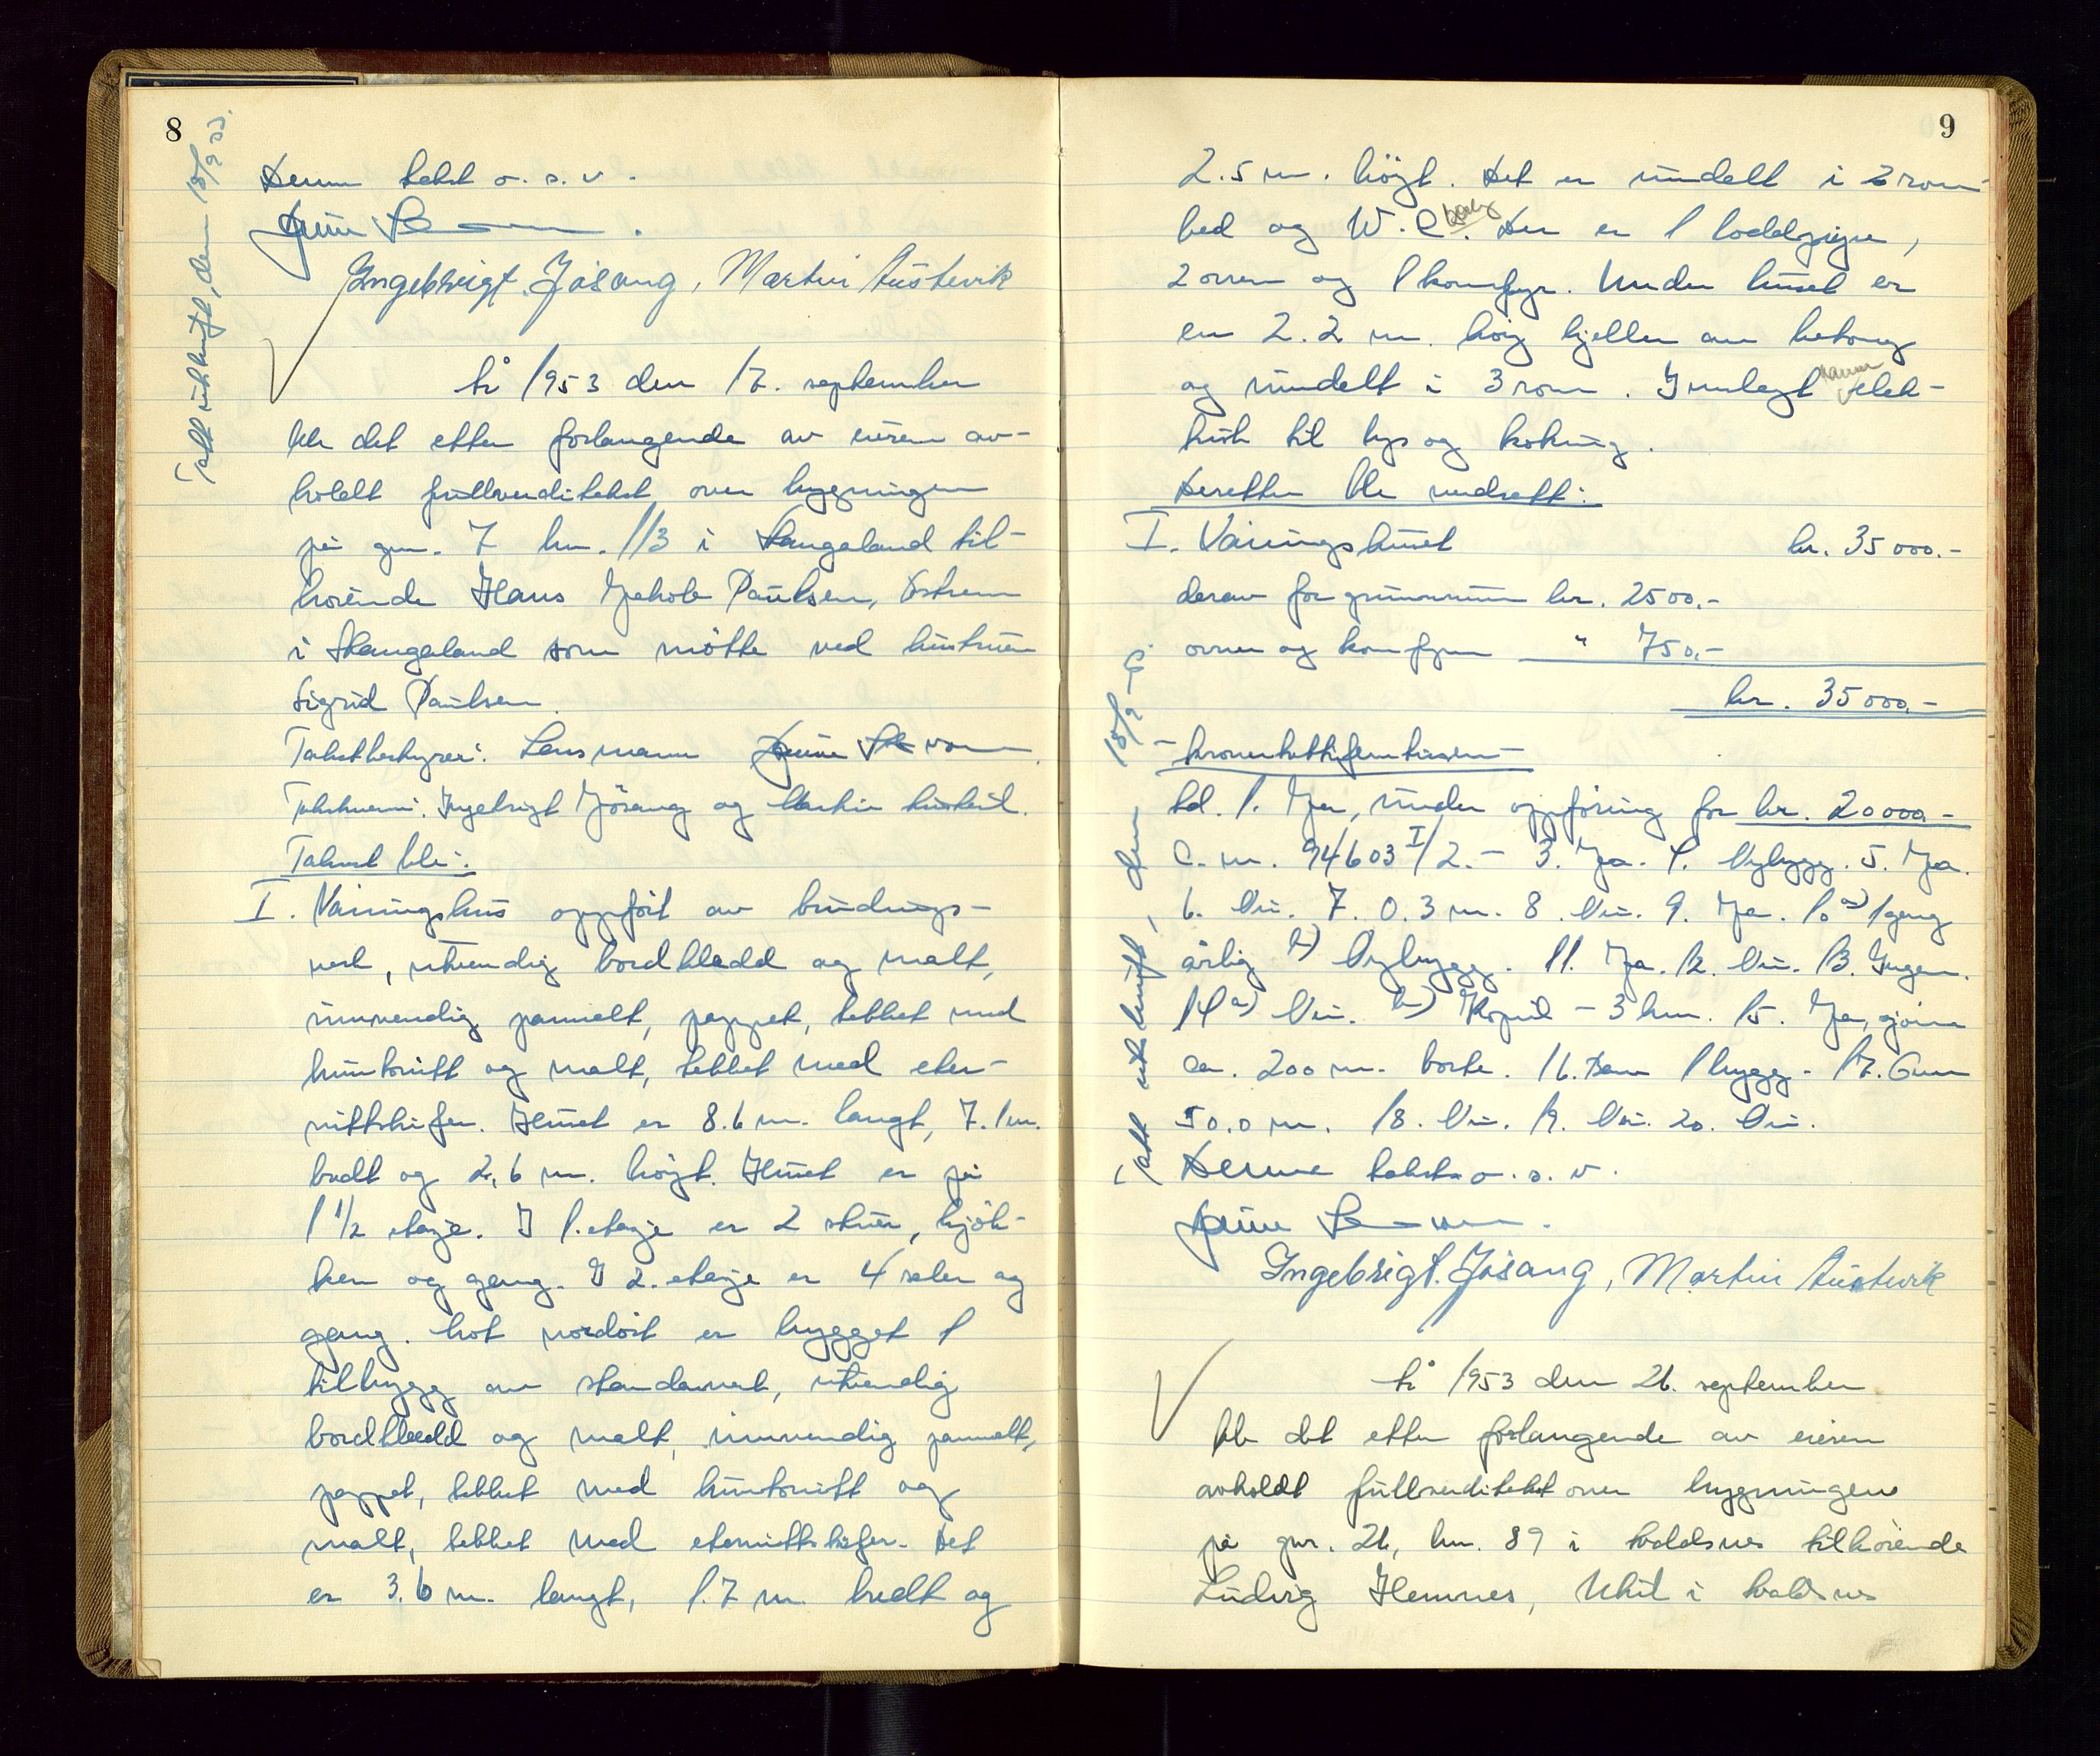 8
Tatt utskrift, den 18/9 53.
Denne takst o. s. v.
Ingebrigt Jøsang, Martin Austevik
År 1953 den 17. september
ble det etter forlangende av eieren av-
holdt fullverditakst over bygningen
på gnr. 7 bnr. 113 i Stangaland til-
hørende Hans Jakob Paulsen, Østrem
i Stangaland som møtte ved hustruen
Sigrid Paulsen.
Takstbestyrer: Lensmann
Takstmenn: Ingebrigt Jøsang og Martin Austevik.
Takst ble:
I. Våningshus oppført av bindings-
verk, utvendig bordkledd og malt,
innvendig pannelt, pappet, tekket med
huntonitt og malt, tekket med eter-
nittskifer. Huset er 8.6 m. langt, 7.1 m.
bredt og 2,6 m. høgt. Huset er på
1 1/2 etasje. I 1. etasje er 2 stuer, kjøk-
ken og gang. I 2. etasje er 4 saler og
gang. Mot nordøst er bygget 1
tilbygg av standarverk, utvendig
bordkledd og malt, innvendig pannelt,
pappet, tekket med huntonitt og
malt, tekket med eternittskifer. Det
er 3.6 m. langt, 1.7 m. bredt og
9
2.5 m. høgt. Det er inndelt i 2 rom
bad og W.C. Der er 1 loddpipe,
2 ovner og 1 komfyr. Under huset er
en 2.2 m. høg kjeller av betong
og inndelt i 3 rom. Innlagt vann elek-
trisk til lys og koking.
Deretter ble verdsatt:
I. Våningshuset kr. 35 000.-
derav for grunnmur kr. 2500.-
ovner og komfyr " 750.-
kr. 35 000.-
- kronertrettifemtusen -
Tatt utskrift, den 18/9 - 53
td. 1. Ja, under oppføring for kr. 20 000.-
C. nr. 94603 I/2. - 3. Ja. 4. Nybygg. 5. Ja.
6. Nei. 7. 0.3 m. 8. Nei. 9. Ja. 10 a) 1 gang
årlig b) Nybygg. 11. Ja. 12. Nei. 13. Ingen.
14 a) Nei. b) Kopvik - 3 km. 15. Ja, sjøen
ca. 200 m. borte. 16. Som 1 bygg. 17. Over
50.0 m. 18. Nei. 19. Nei. 20. Nei.
Denne takst o. s. v.
Ingebrigt Jøsang, Martin Austevik
År 1953 den 26. september
ble det etter forlangende av eieren
avholdt fullverditakst over bygningene
på gnr. 26, bnr. 89 i Avaldsnes tilhørende
Ludvig Hemnes, Utvik i Avaldsnes